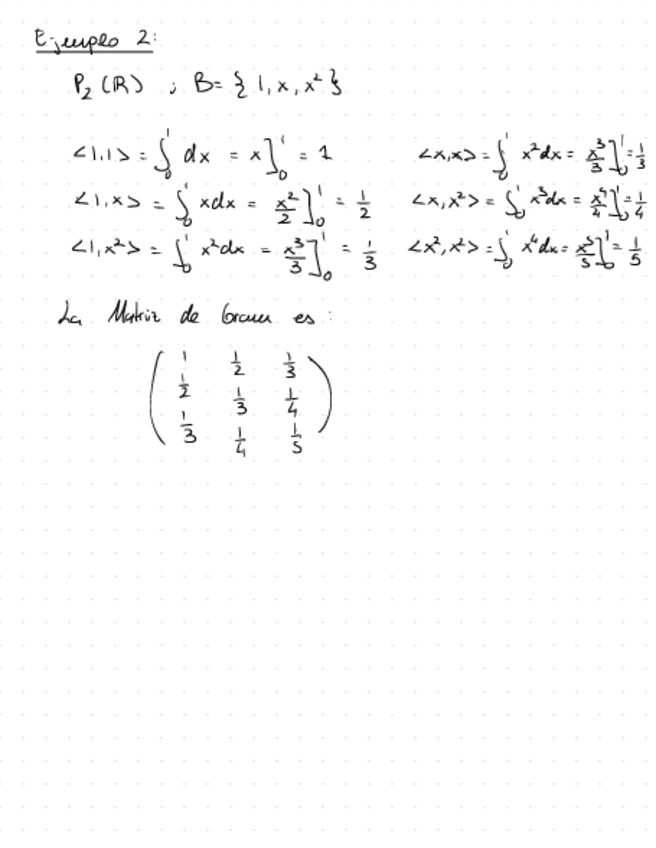 Ejemplo 2:
P₂(ℝ) ; B= { 1, x, x² }
<1,1> = ∫₀¹ dx = x]₀¹ = 1
<1,x> = ∫₀¹ xdx = x²/2]₀¹ = 1/2
<1,x²> = ∫₀¹ x²dx = x³/3]₀¹ = 1/3
<x,x> = ∫₀¹ x²dx = x³/3]₀¹ = 1/3
<x,x²> = ∫₀¹ x³dx = x⁴/4]₀¹ = 1/4
<x²,x²> = ∫₀¹ x⁴dx = x⁵/5]₀¹ = 1/5
La Matriz de Gram es :
1 1/2 1/3
1/2 1/3 1/4
1/3 1/4 1/5